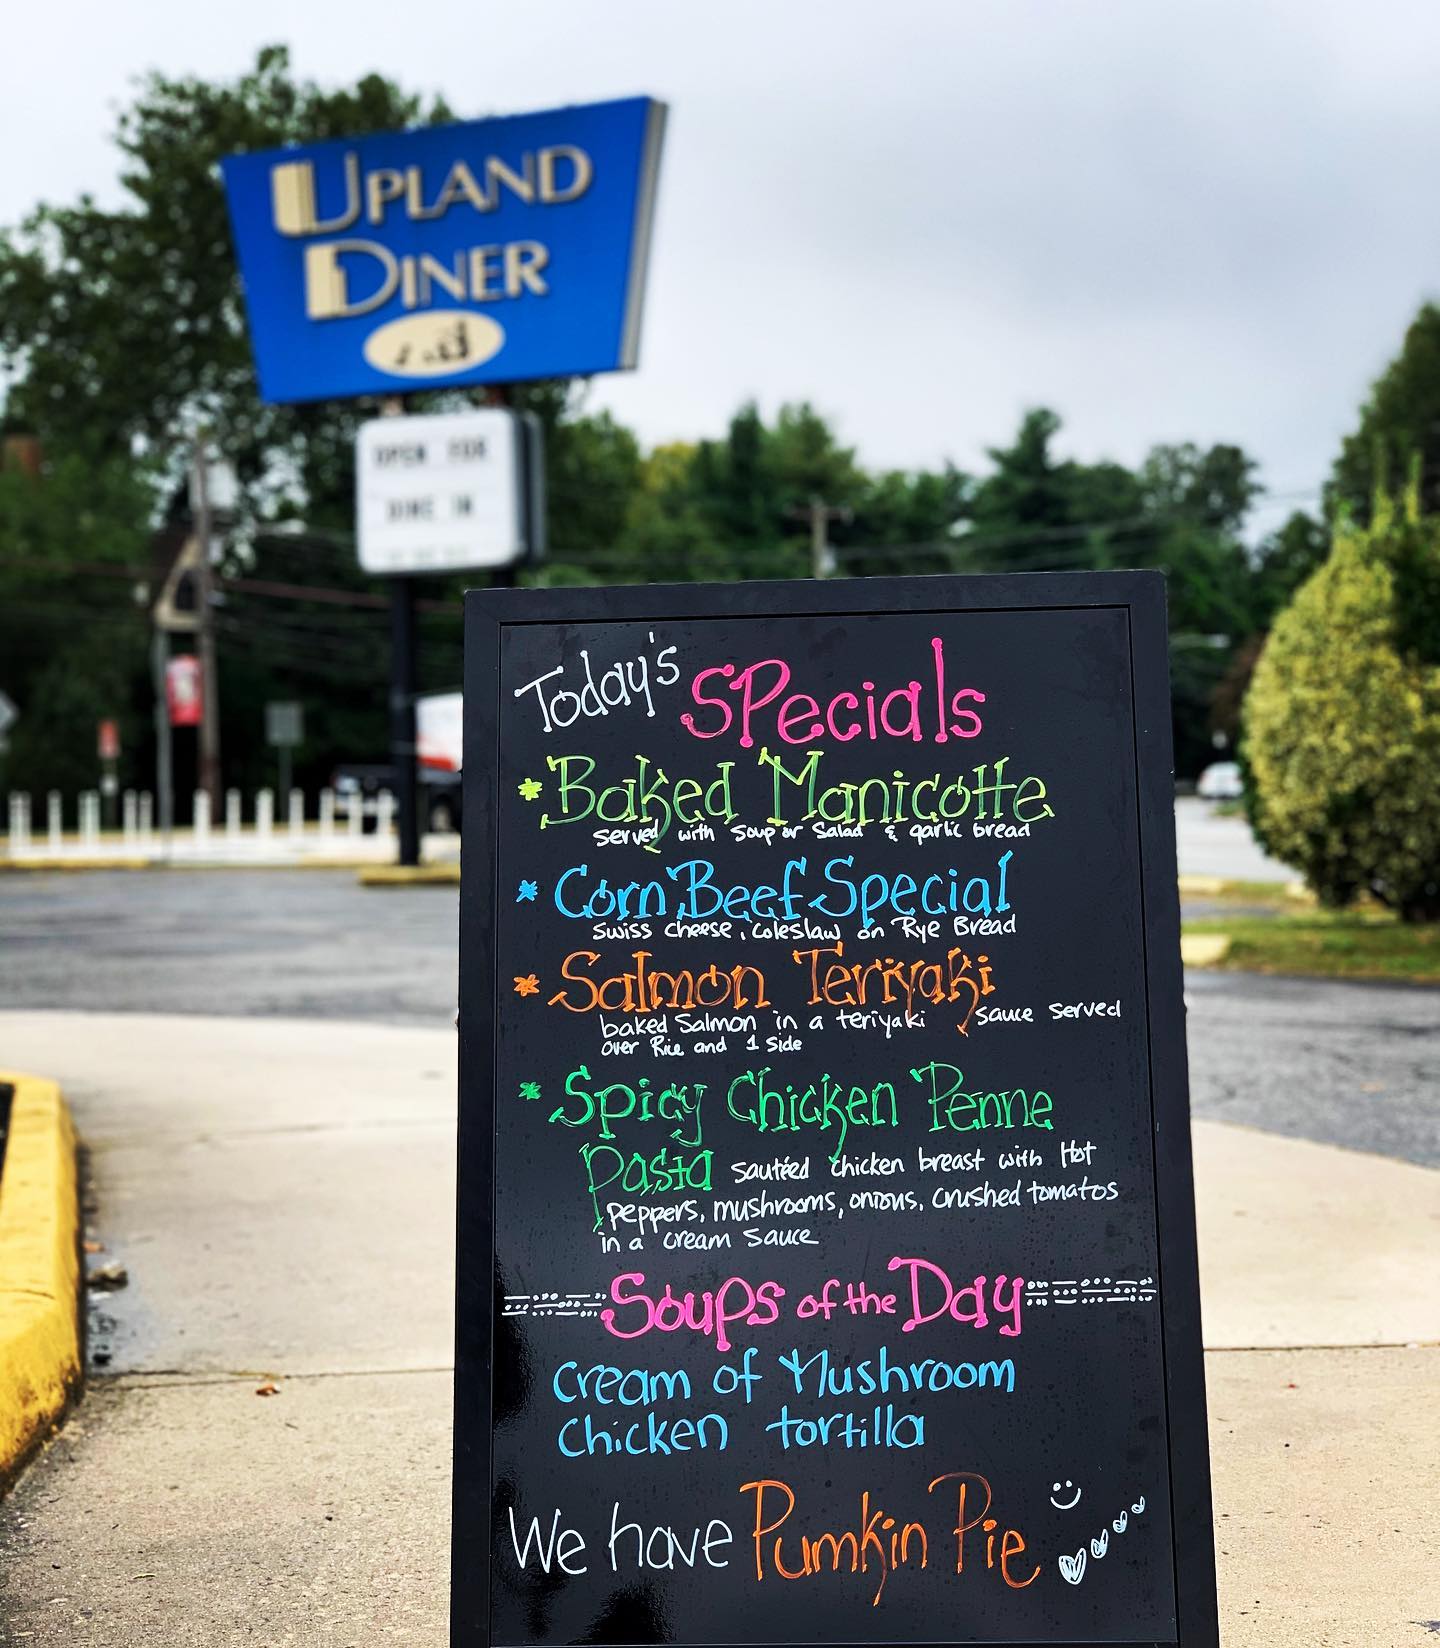 UPLAND
DINER
OPEN FOR
DINE IN
Today's Specials
* Baked Manicotte
served with soup or Salad & garlic bread
* Corn Beef Special
swiss cheese, coleslaw on Rye Bread
* Salmon Teriyaki
baked Salmon in a teriyaki sauce served
over Rice and 1 side
* Spicy Chicken Penne
Pasta sautéed chicken breast with Hot
peppers, mushrooms, onions, crushed tomatos
in a cream sauce
Soups of the Day
cream of Mushroom
chicken tortilla
We have Pumkin Pie